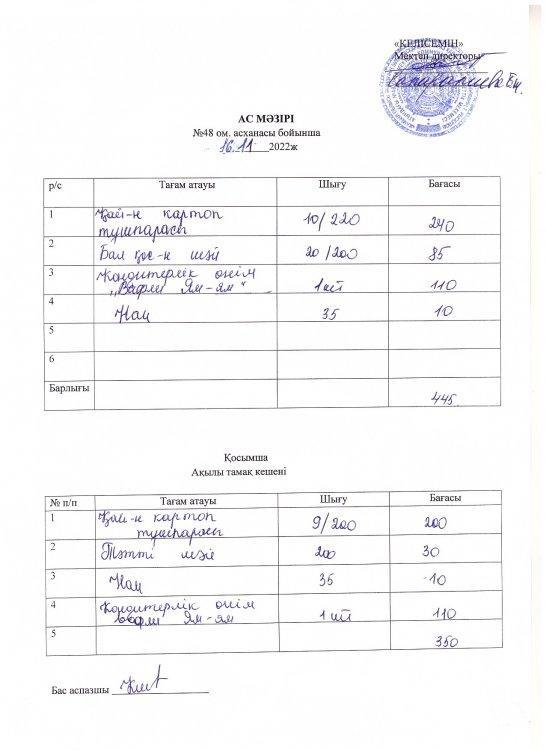 «КЕЛІСЕМІН»
Мектеп директоры
АС МӘЗІРІ
№48 ом. асханасы бойынша
16.11 2022ж
р/с Тағам атауы Шығу Бағасы
1 Қай-н картоп тұшпарасы 10/220 240
2 Бал қос-н шәй 20/200 85
3 Кондитерлік өнім „Вафли Ям-ям" 1 шт 110
4 Нан 35 10
5
6
Барлығы 445
Қосымша
Ақылы тамақ кешені
№ п/п Тағам атауы Шығу Бағасы
1 Қай-н картоп тұшпарасы 9/200 200
2 Тәтті шәй 200 30
3 Нан 35 10
4 Кондитерлік өнім вафли Ям-ям 1 шт 110
5 350
Бас аспазшы